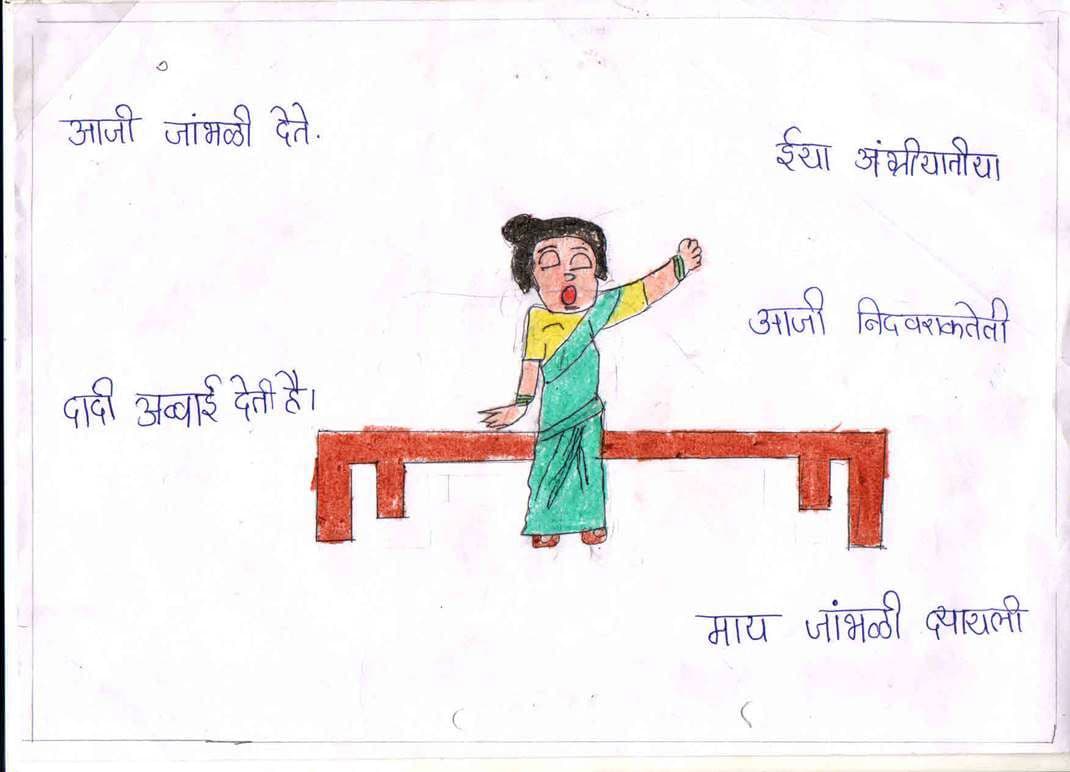 आजी जांभळी देते.
ईया अंभीयातीया
आजी निदवराकतेती
दादी अव्वाई देती है।
माय जांभळी द्यायली